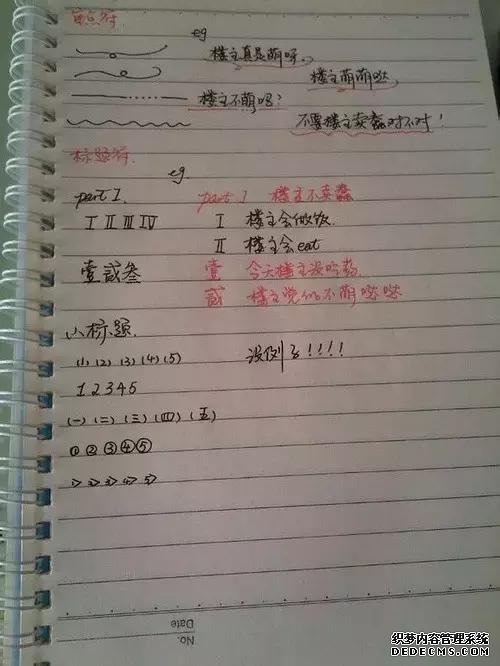 重点符
eg
楼主真是萌呀。
楼主萌萌哒。
楼主不萌吗?
不要楼主卖蠢对不对!
标题符.
eg.
part I. part I 楼主不卖蠢
I II III IV I 楼主会做饭.
II 楼主会eat
壹贰叁 壹 今天楼主没吃药
贰 楼主觉的不萌哒哒
小标题.
(1) (2) (3) (4) (5) 没例了!!!!
1 2 3 4 5
(一) (二) (三) (四) (五)
① ② ③ ④ ⑤
1> 2> 3> 4> 5>
No.
Date
织梦内容管理系统
DEDECMS.COM